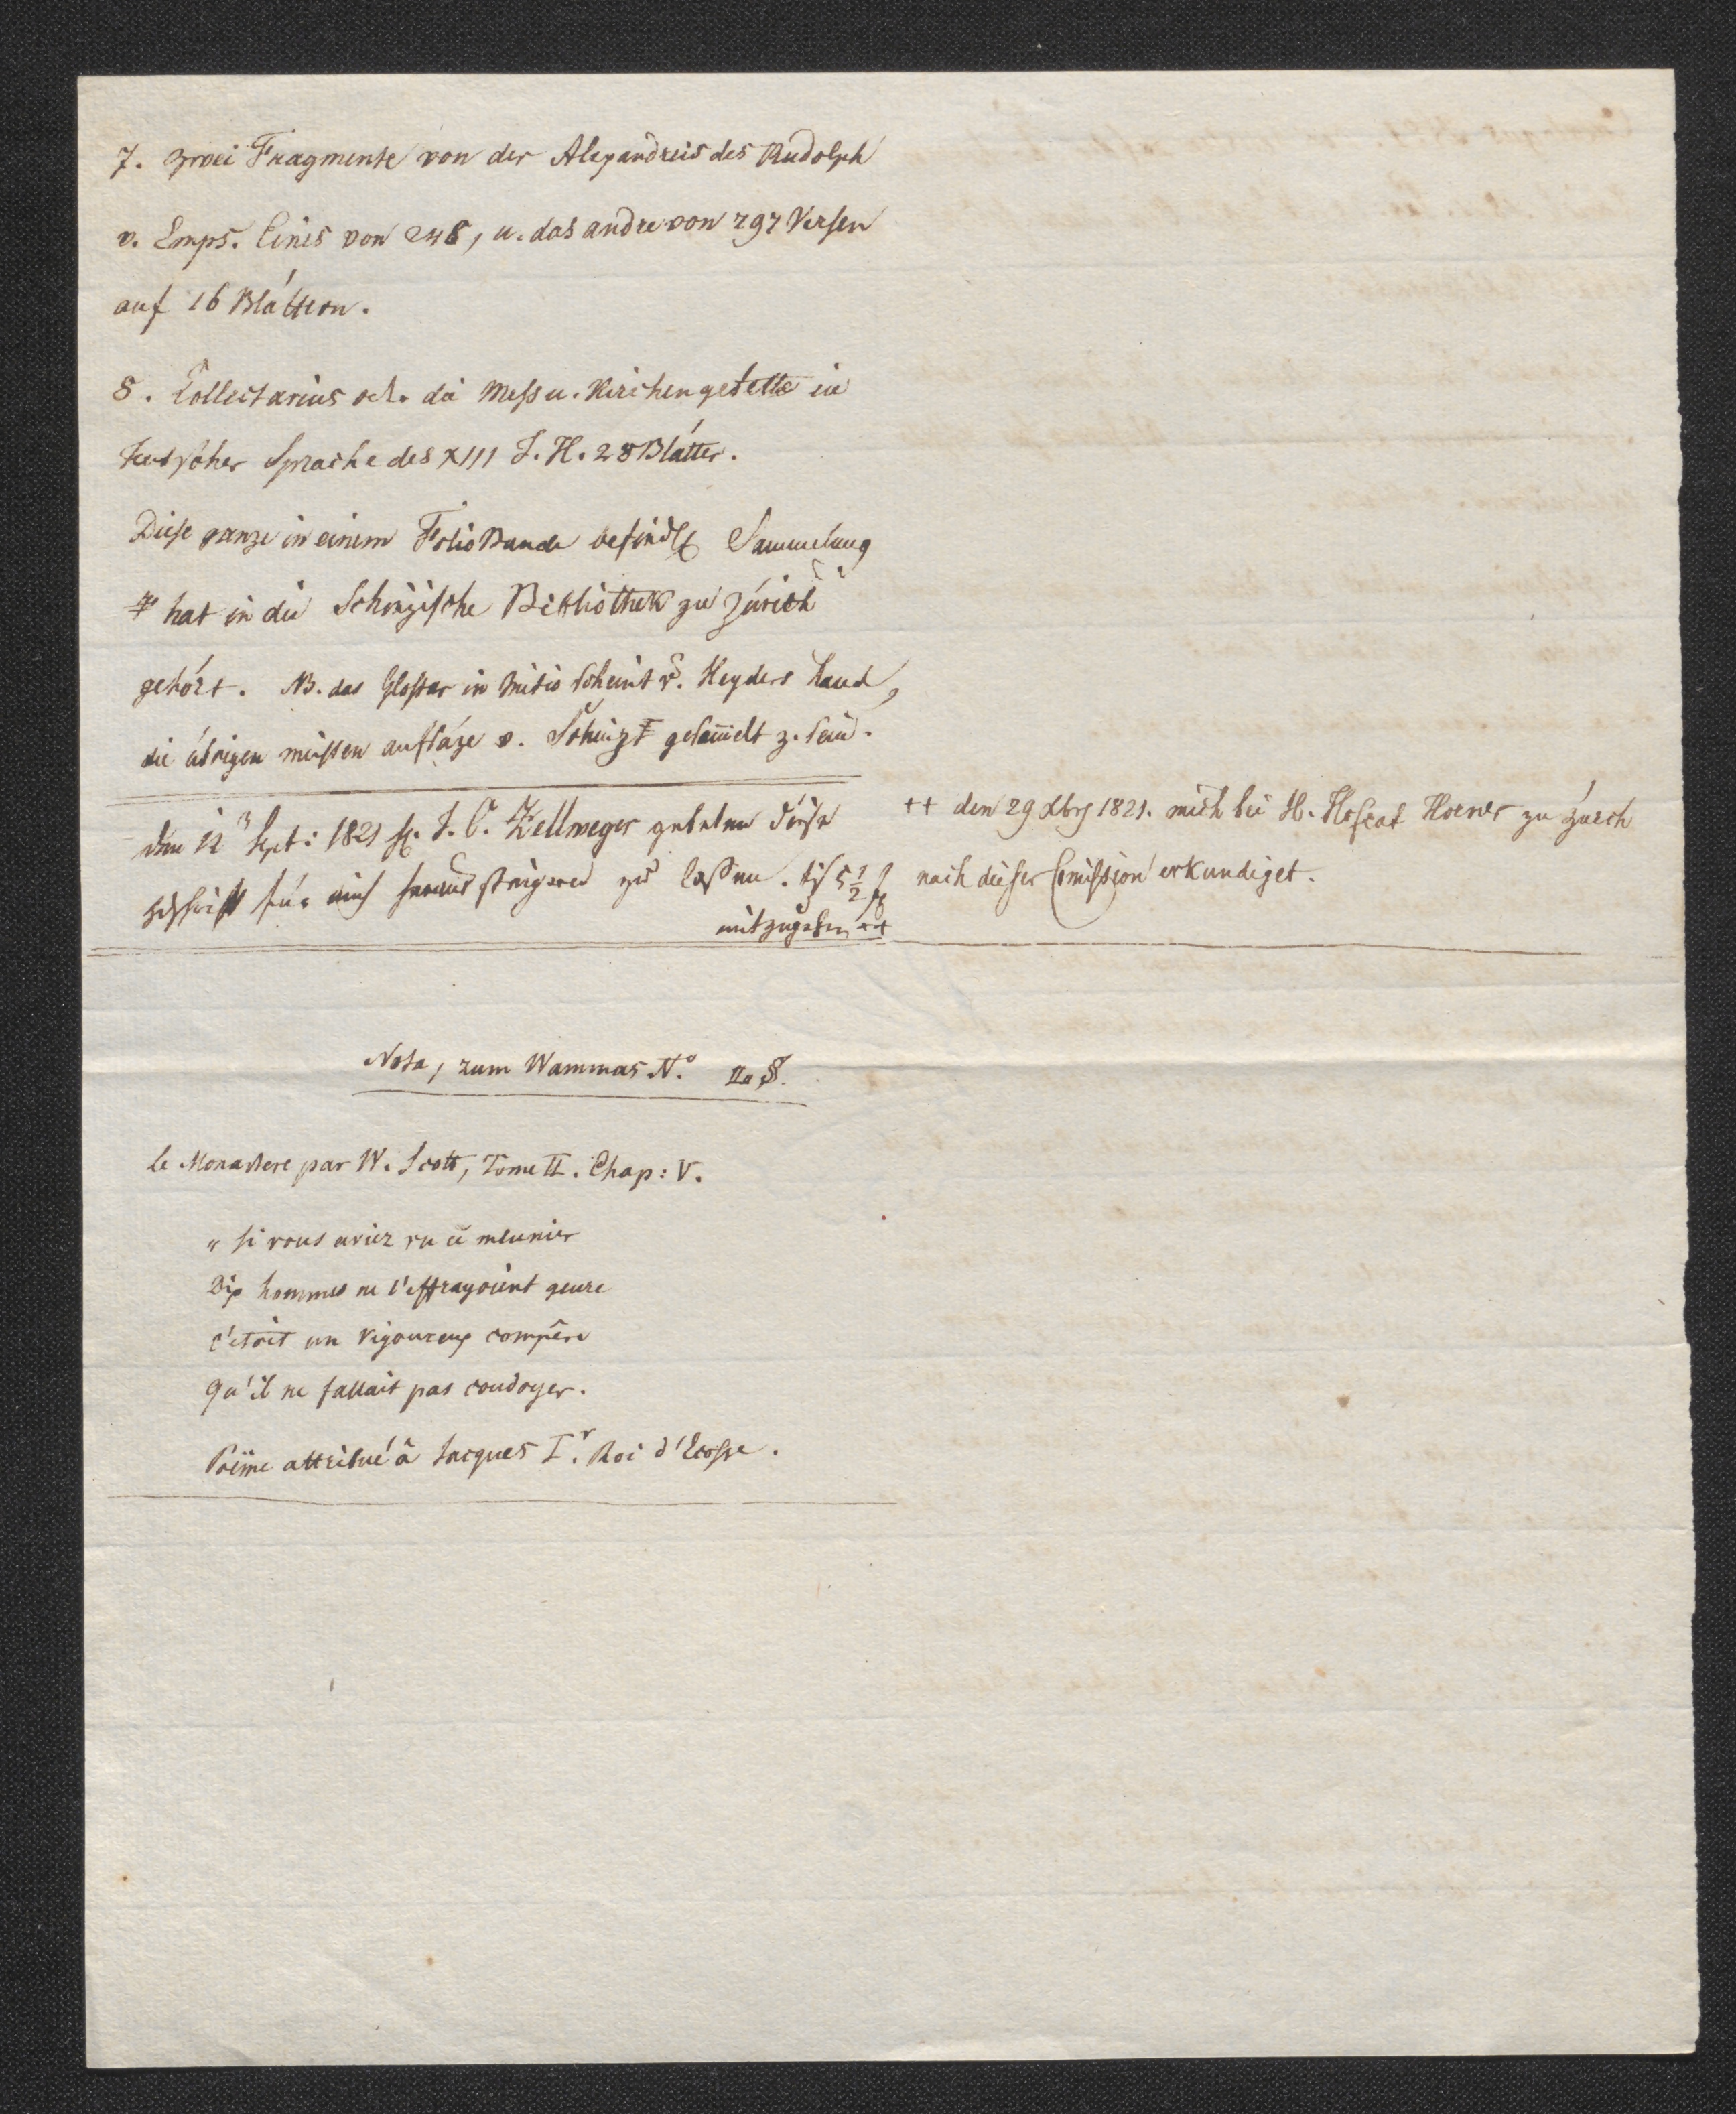 7. zwei Fragmente von der Alexandreis des Rudolph
v. Emps. Eines von 248, u. das andre von 797 Versen
auf 16 Blättern.
8. Collectarius od. die Mess u. Kirchengebette in
teutscher Sprache des XIII J. H. 28 Blätter.
Diese ganze in einem Folio Bande befindl. Sammelung
hat in die Schinzische Bibliothek zu Zürich
gehört. NB. das Glossar in initio scheint v. Heyders hand,
die übrigen müssen aufsäze v. Schinz gesam̄elt z. sein.
den 12 Sept: 1821 H. J. C. Zellweger gebeten diese
für mich steigeren zu lassen. bis 5 1/2 f
mitzugeben ++
++ den 29 Xbrs 1821. mich bei H. Hofrat Horner zu Zürch
nach dieser Com̄ission erkundiget.
Nota, zum Wammas N.o IIa 8.
le Monastere par W. Scott, Tome II. Chap: V.
" si vous aviez vu ce meunier
Dix hommes ne l'effrayoient geure
c'étoit un vigoureux compère
Qu'il ne fallait pas coudoyer.
Poëme attribué à Jacques I.r Roi d'Ecosse.